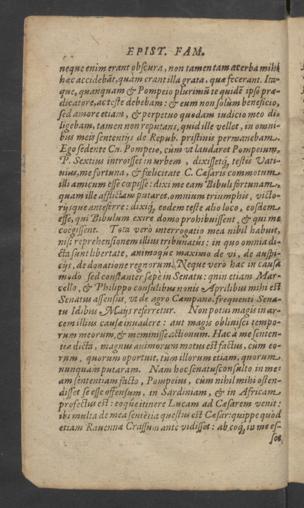 EPIST. FAM.
neque enim erant obscura, non tamen tam acerba mihi
hæc accidebāt, quàm erant illa grata, quæ fecerant. Ita-
que, quanquam & Pompeio plurimū te quidē ipso præ-
dicatore, ac teste debebam: & eum non solùm beneficio,
sed amore etiam, & perpetuo quodam iudicio meo di-
ligebam, tamen non reputans, quid ille vellet, in omni-
bus meis sententijs de Repub. pristinis permanebam.
Ego sedente Cn. Pompeio, cùm vt laudaret Pompeium,
P. Sextius introisset in vrbem, dixissetq́, testis Vati-
nius, me fortuna, & fœlicitate C. Cæsaris commotum
illi amicum esse cœpisse: dixi me eam Bibuli fortunam,
quam ille afflictam putaret, omnium triumphis, victo-
rijsque anteferre: dixiq́, eodem teste alio loco, eosdem
esse, qui Bibulum exire domo prohibuissent, & qui me
coegissent. Tota verò interrogatio mea nihil habuit,
nisi reprehensionem illius tribunatus: in quo omnia di-
cta sunt libertate, animoque maximo de vi, de auspi-
cijs, de donatione regnorum. Neque verò hac in causa
modò sed constanter sæpe in Senatu: quin etiam Mar-
cello, & Philippo consulibus nonis Aprilibus mihi est
Senatus assensus, vt de agro Campano, frequenti Sena-
tu Idibus Maijs referretur. Non potui magis in ar-
cem illius causæ inuadere: aut magis obliuisci tempo-
rum meorum, & meminisse actionum. Hac à me senten-
tia dicta, magnus animorum motus est factus, cùm eo-
rum, quorum oportuit, tùm illorum etiam, quorum
nunquam putaram. Nam hoc senatusconsulto in me-
am sententiam facto, Pompeius, cùm nihil mihi osten-
disset se esse offensum, in Sardiniam, & in Africam
profectus est: eoque itinere Lucam ad Cæsarem venit:
ibi multa de mea sentētia questus est Cæsar: quippe quòd
etiam Rauennæ Crassum antè vidisset: ab eoq́, in me es-
set